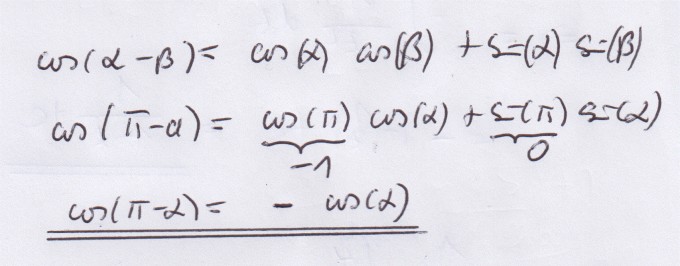 cos(α-β)= cos(α) cos(β) + sin(α) sin(β)
cos(π-α)= cos(π) cos(α) + sin(π) sin(α)
-1 0
cos(π-α)= - cos(α)